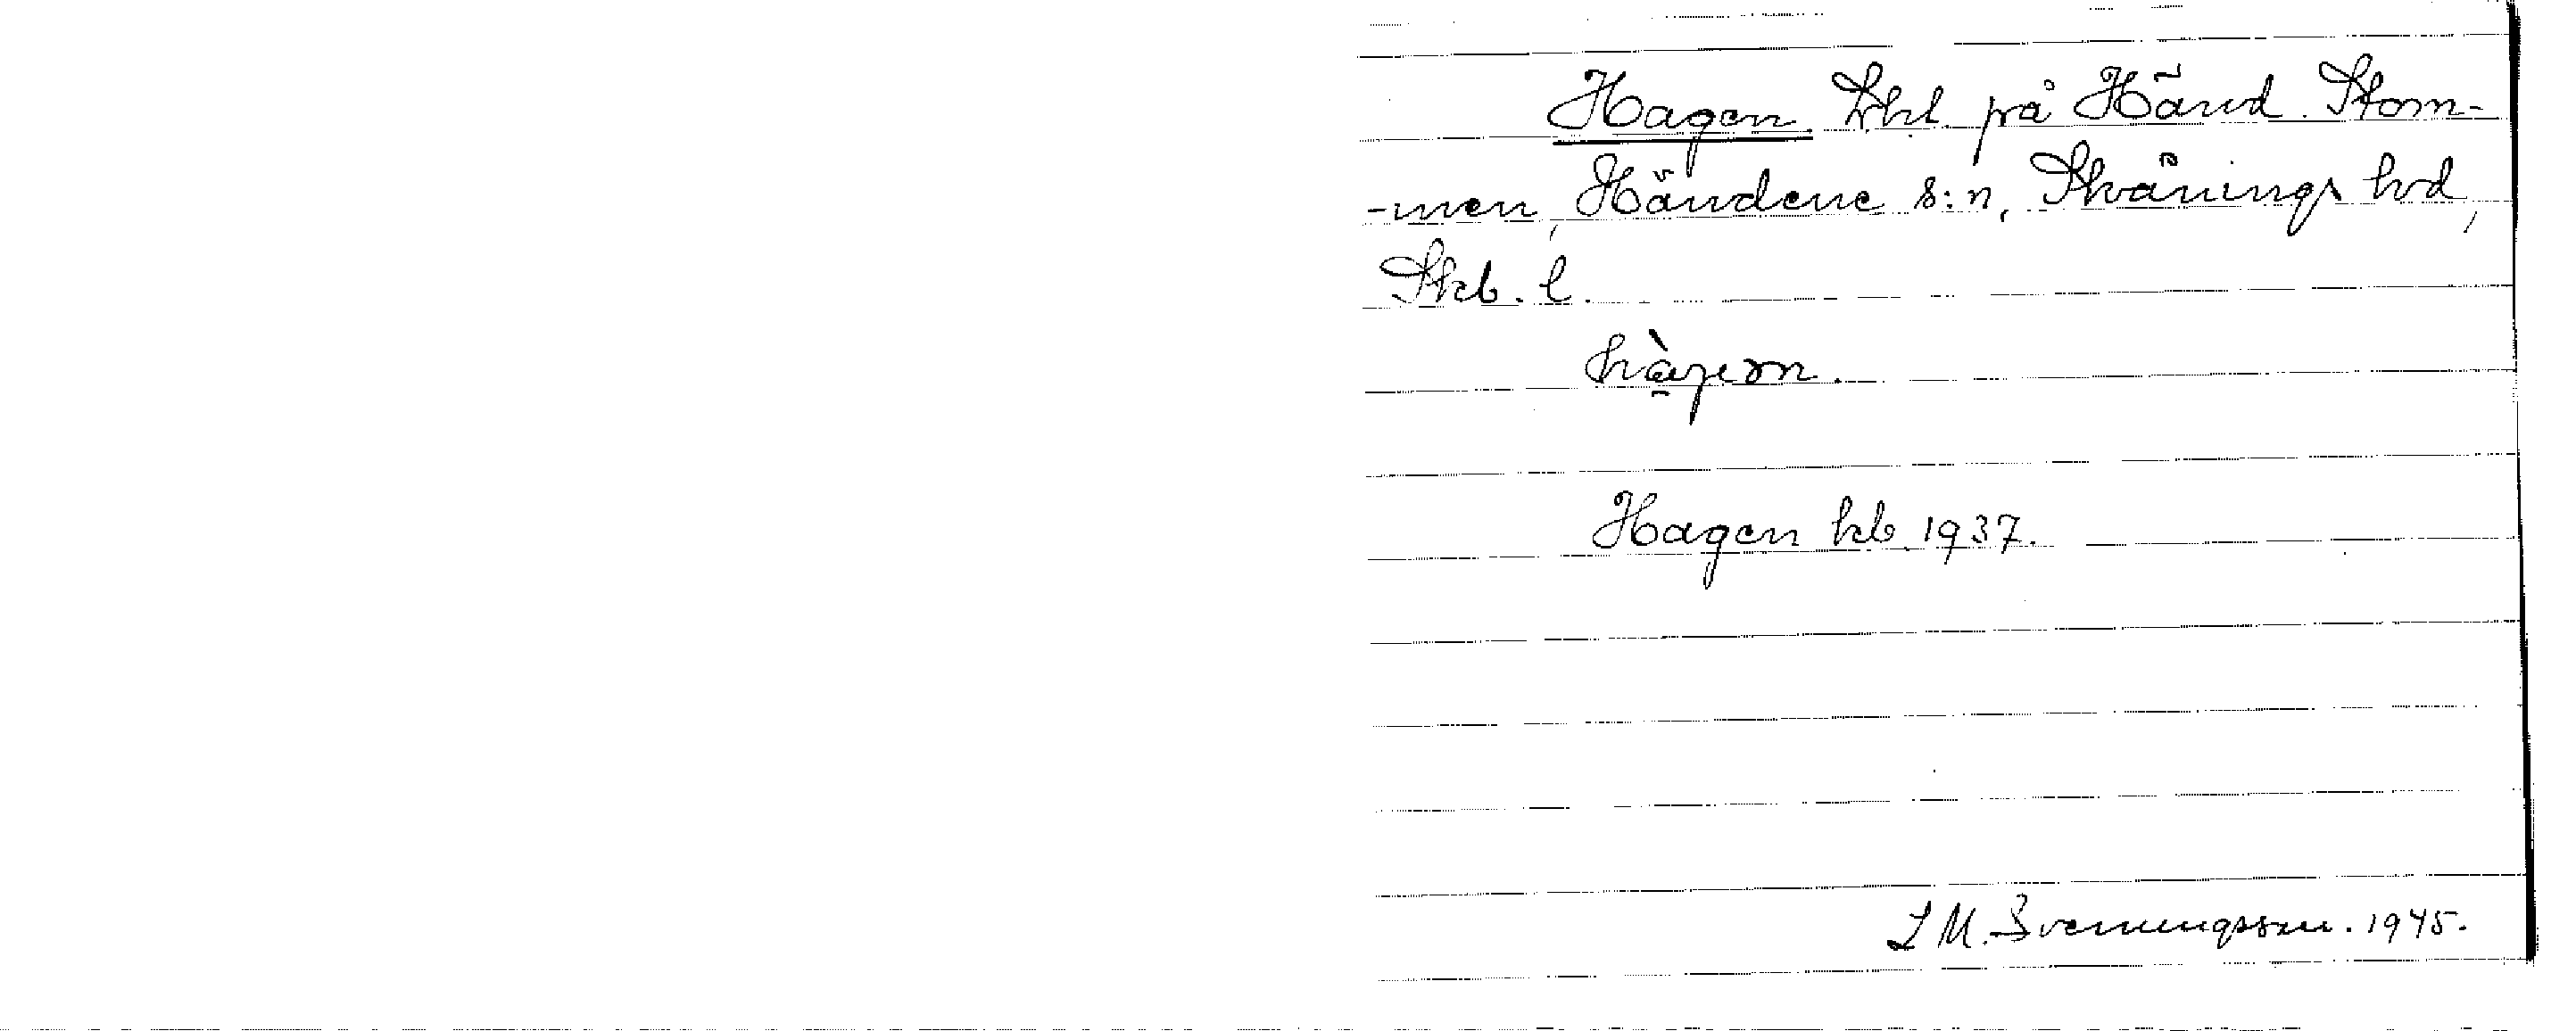 Hagen. Lht. på Händ. Stom-
-men, Händene s:n, Skånings hd,
Skb. l.
hàgen.
Hagen kb. 1937.
L M. Svenungsson. 1945.